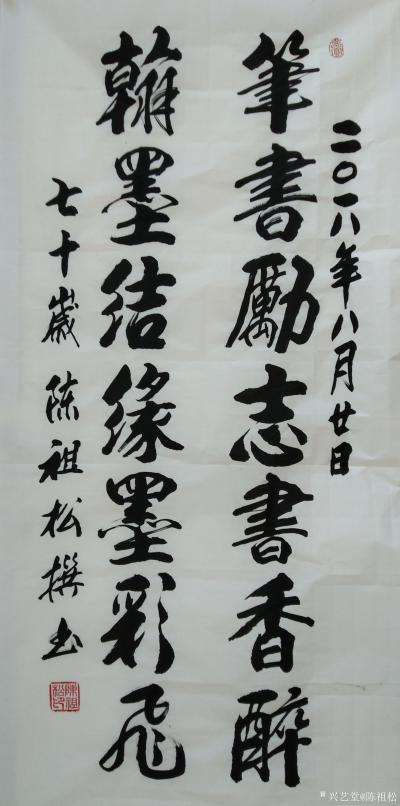 二〇一八年八月廿日
筆書勵志書香醉
翰墨结缘墨彩飛
七十歲 陈祖松撰书
陳祖松印
兴艺堂@陈祖松